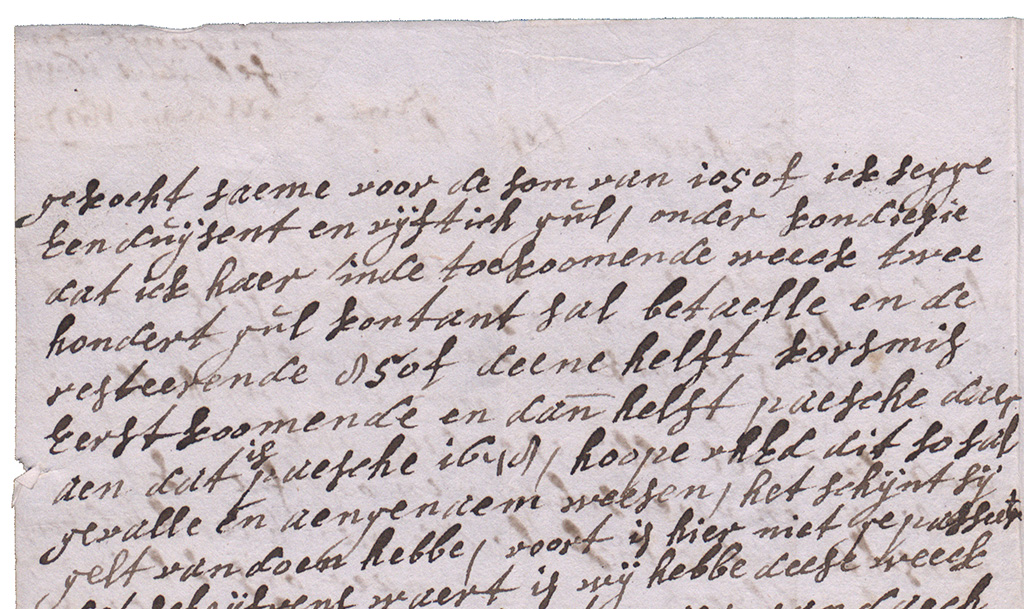 gekocht saeme voor de som van 1050f ick segge
Eenduijsent en vijftich gŭl, onder kondiesie
dat ick haer inde toekoomende weeck twee
hondert gŭl kontant sal betaelle en de
resteerende 850f deene helft korsmis
Eerstkoomende en dan helft paesche daer
aen dat is paesche hoope vhEd dit so sal
gevalle en aengenaem weesen, het schijnt sij
gelt van doen hebbe, voort is hier niet gepasseert
schrijvens waert is wij hebbe deese weeck